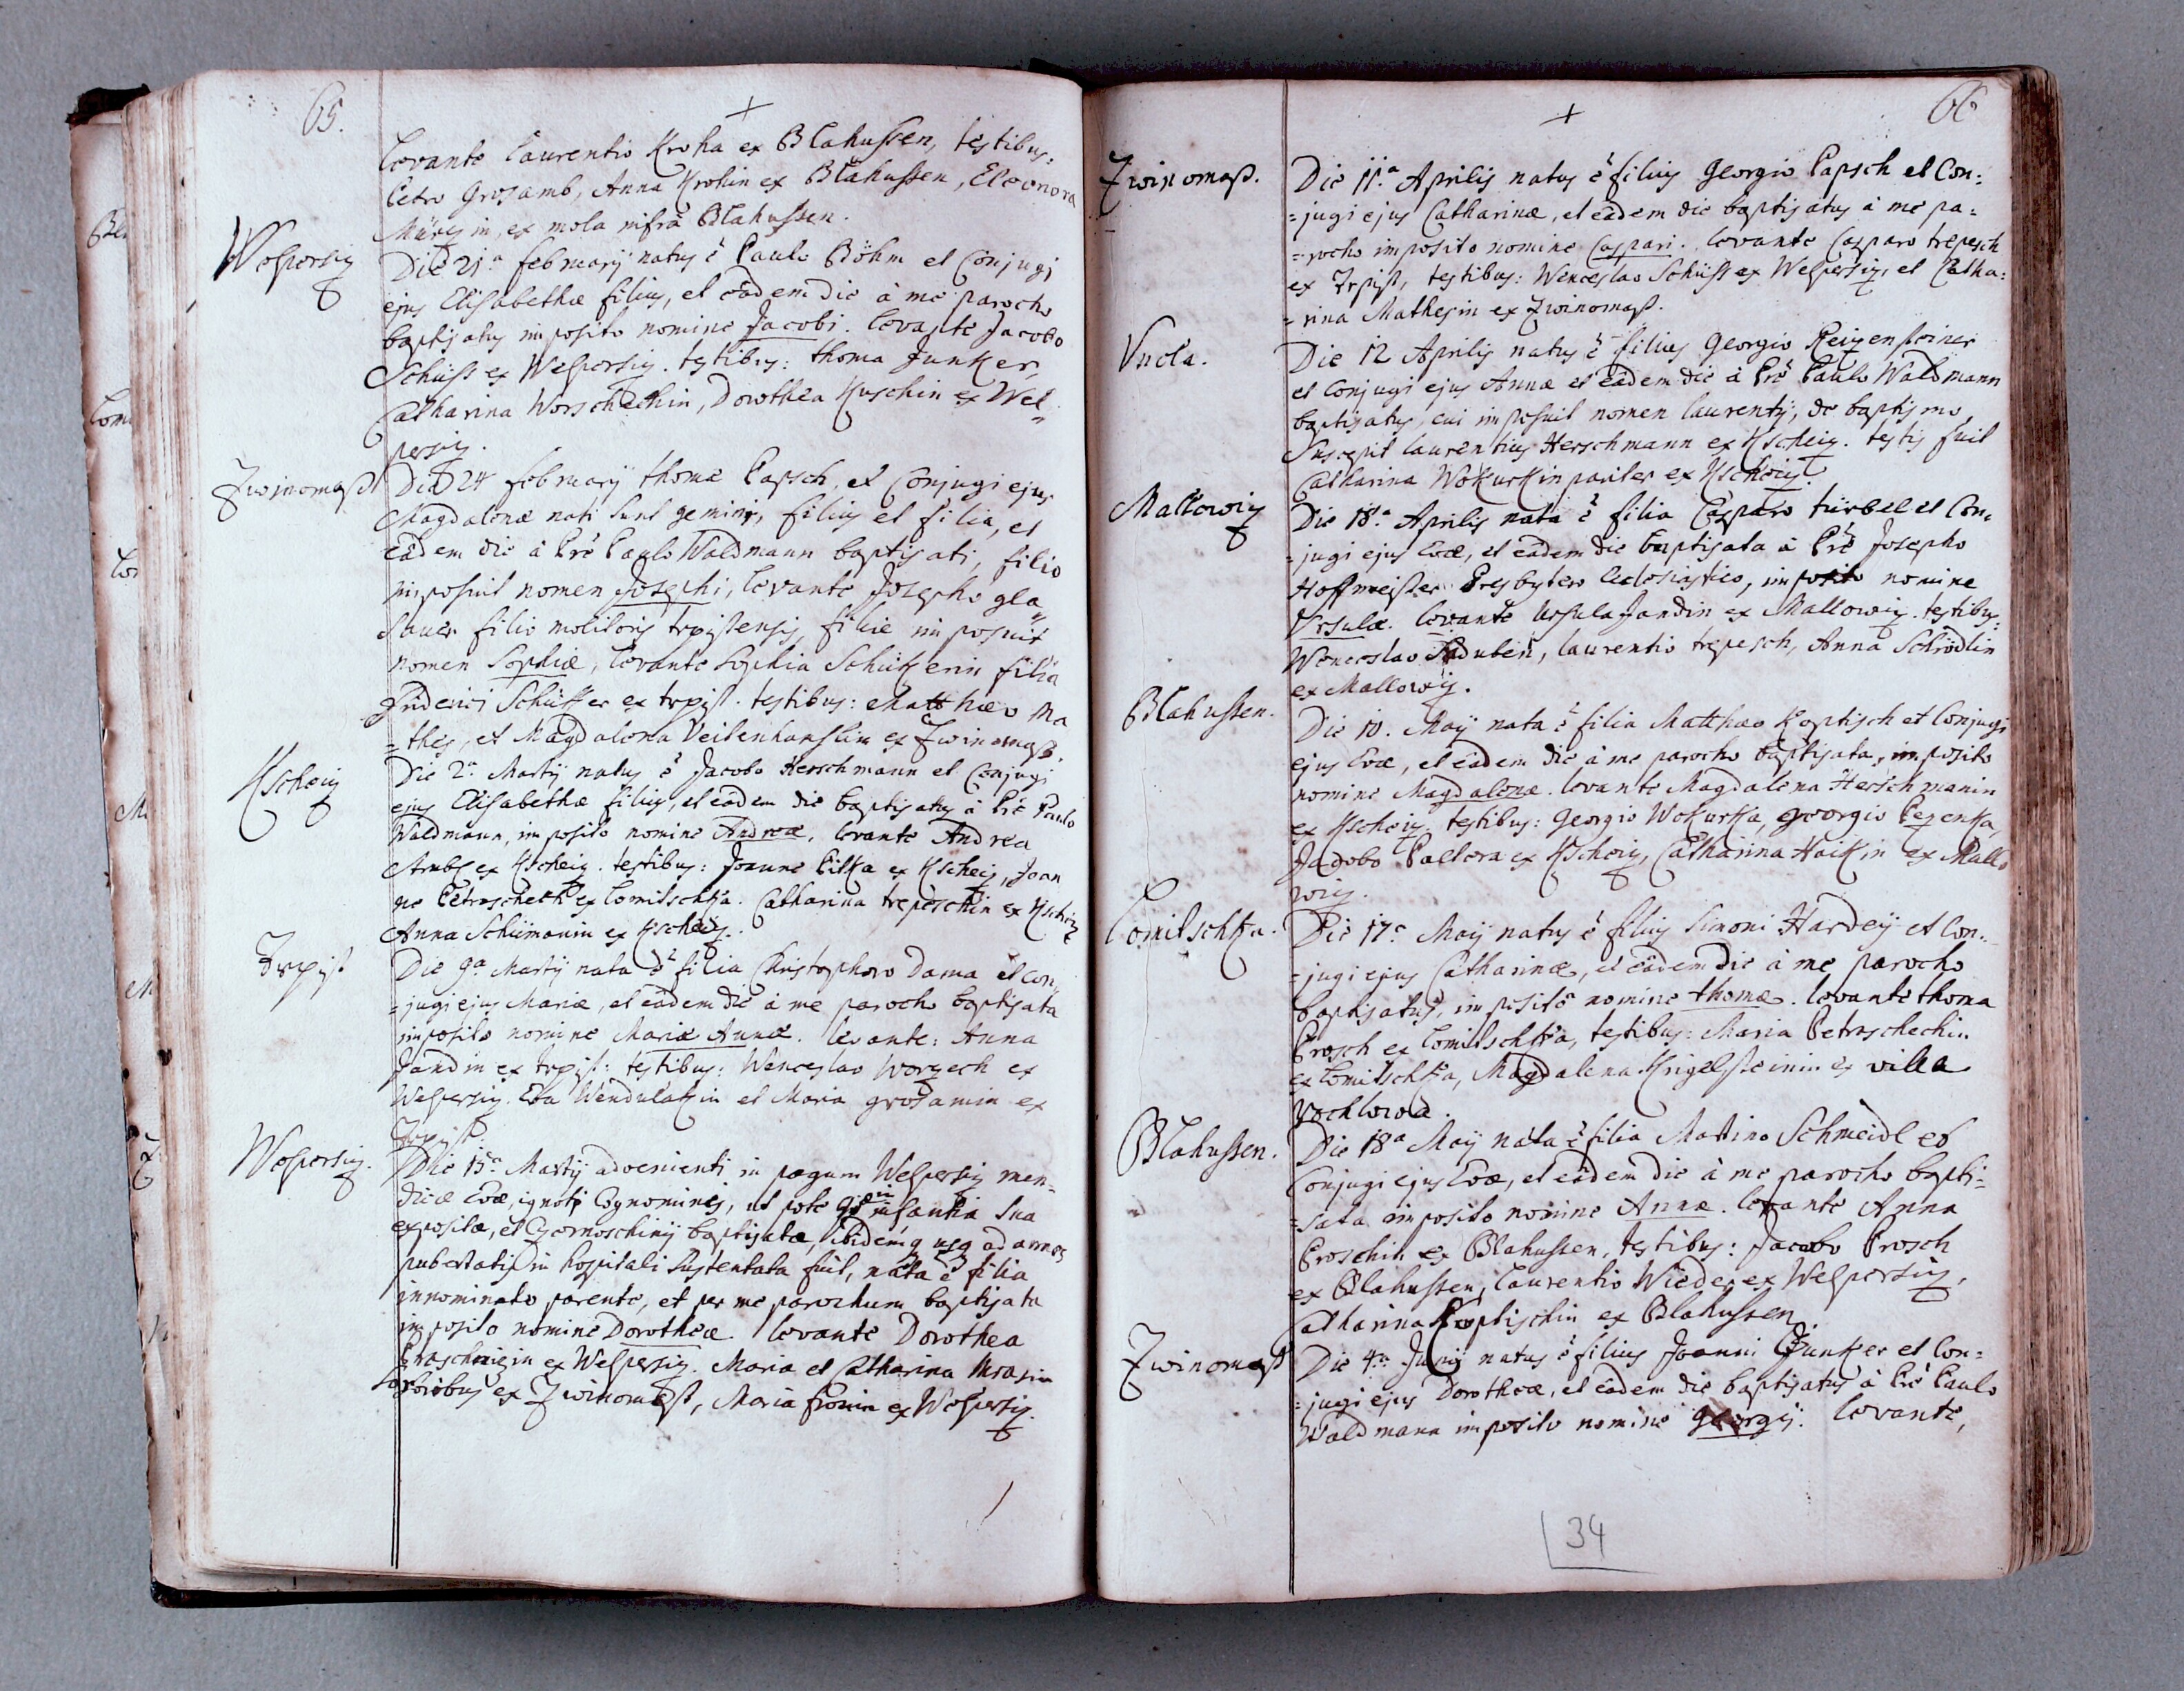 65.
Levante Laurentio Kroha ex Blahussen, testibus:
Petro Grosamb, Anna Krohin ex Blahussen, Eleonora
ex mola infra Blahussen.
Welpersig
Die 21a february natus è Paulo Böhm et Conjugi
ejus Elisabethæ filius, et eâdem die à me parocho
baptisatus imposito nomine Jacobi. levante Jacobo
Schuss ex Welpersig. testibus: thoma Junker,
Catharina Worschechin, Dorothea Kuschin ex Wel=
persig.
Zwinomass
Die 24 february thomæ Papsch, et Conjugi ejus
Magdalenæ nati sunt gemini, filius et filia, et
eâdem die à Pre Paulo Waldmann baptisati, filio
imposuit nomen Josephi, levante Josepho gla=
sauer filio molitoris trpistensis, filiæ imposuit
nomen Sophiæ, levante Sophia Schützerin filia
Friderici Schützer ex trpist. testibus: Matthæo Ma
=thes, et Magdalena Veitenhanslin ex Zwinomass.
Kscheig
Die 2a Martij natus è Jacobo Herschmann et Conjugi
ejus Elisabethæ filius, et eâdem die baptisatus à Pre Paulo
Waldmann, imposito nomine Andreæ, levante Andrea
ex Kscheig. testibus: Joanne Pilka ex Kscheig, Joan
ne Petroscheck ex Lomitschka. Catharina trepeschin ex Kscheig
Anna Schümanin ex Kscheig.
Trpist
Die 9a Martij nata è filia Christophoro Dama et Con
=jugi ejus Mariæ, et eâdem die à me parocho baptisata
imposito nomine Mariæ Annæ. levante: Anna
Jandin ex trpist: testibus: Wenceslao Worzech ex
Welpersig. Eva Wendulakin et Maria grosamin ex
Trpist.
Welpersig.
Die 15a Martij advenienti in pagum Welpersig men=
dicæ Evæ, ignoti Cognominis, ut pote in infantia sua
expositæ, et Czernoschinij baptisatæ, ibidemq usq ad annos
pubertatis in hospitali sustentata fuit, nata è filia
innominato parente, et per me parochum baptisata
imposito nomine Dorotheæ. levante Dorothea
Praschnigin ex Welpersig. Maria et Catharina Mrasin
sororibus ex Zwinomass, Maria fronin ex Welpersig.
66
Zwinomass.
Die 11a Aprilis natus è filius Georgio Papsch et Con=
=jugi ejus Catharinæ, et eâdem die baptisatus à me pa=
=rocho imposito nomine Caspari. levante Casparo trepesch
ex Trpist, testibus: Wenceslao Schüss ex Welpersig, et Catha=
=rina Mathesin ex Zwinomass.
Vnola.
Die 12 Aprilis natus è filius Georgio Reigensteiner
et Conjugi ejus Annæ et eâdem die à Pre Paulo Waldmann
baptisatus, cui imposuit nomen laurentij, de baptismo
suscepit laurentius Herschmann ex Kscheig. testis fuit
Catharina Wokurkin pariter ex Kscheig.
Mallowig
Die 18a Aprilis nata è filia Casparo türbel et Con=
=jugi ejus Evæ, et eâdem die baptisata à Pre Josepho
Hoffmeister Presbytero Ecclesiastico, imposito nomine
Vrsulæ. levante Ursula Jandin ex Mallowig. testibus:
Wenceslao laurentio trepesch, Anna Schrödlin
ex Mallowig.
Blahussen.
Die 10. Maij nata è filia Matthæo Koptisch et Conjugi
ejus Evæ, et eâdem die à me parocho baptisata, imposito
nomine Magdalenæ. levante Magdalena Herschmanin
ex Kscheig. testibus: Georgio Wokurka, georgio Pezenka,
Jacobo Paclera ex Kscheig, Catharina Haikin ex Mallo
wig.
Lomitschka.
Die 17a Maij natus è filius Simoni Hardeÿ et Con=
=jugi ejus Catharinæ, et eâdem die à me parocho
baptisatus, imposito nomine thomæ. levante thoma
Prosch ex Lomitschka, testibus: Maria Petroschechin
ex Lomitschka, Magdalena Krigelsteinin ex villa
Wochlowa.
Blahussen.
Die 18a Maij nata è filia Martino Schmeidl et
Conjugi ejus Evæ, et eâdem die à me parocho bapti=
=sata imposito nomine Annæ. levante Anna
Proschin ex Blahussen, testibus: Jacobo Prosch
ex Blahussen, Laurentio Wieder ex Welpersig,
Catharina Koptischin ex Blahussen.
Zwinomass
Die 4ta Junij natus è filius Joanni Junker et Con=
=jugi ejus Dorotheæ, et eâdem die baptisatus à Pre Paulo
Waldmann imposito nomine Georgij. levante,
34